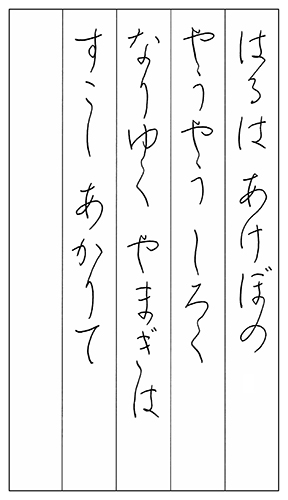 はるは あけぼの
やうやう しろく
なりゆく やまぎは
すこし あかりて